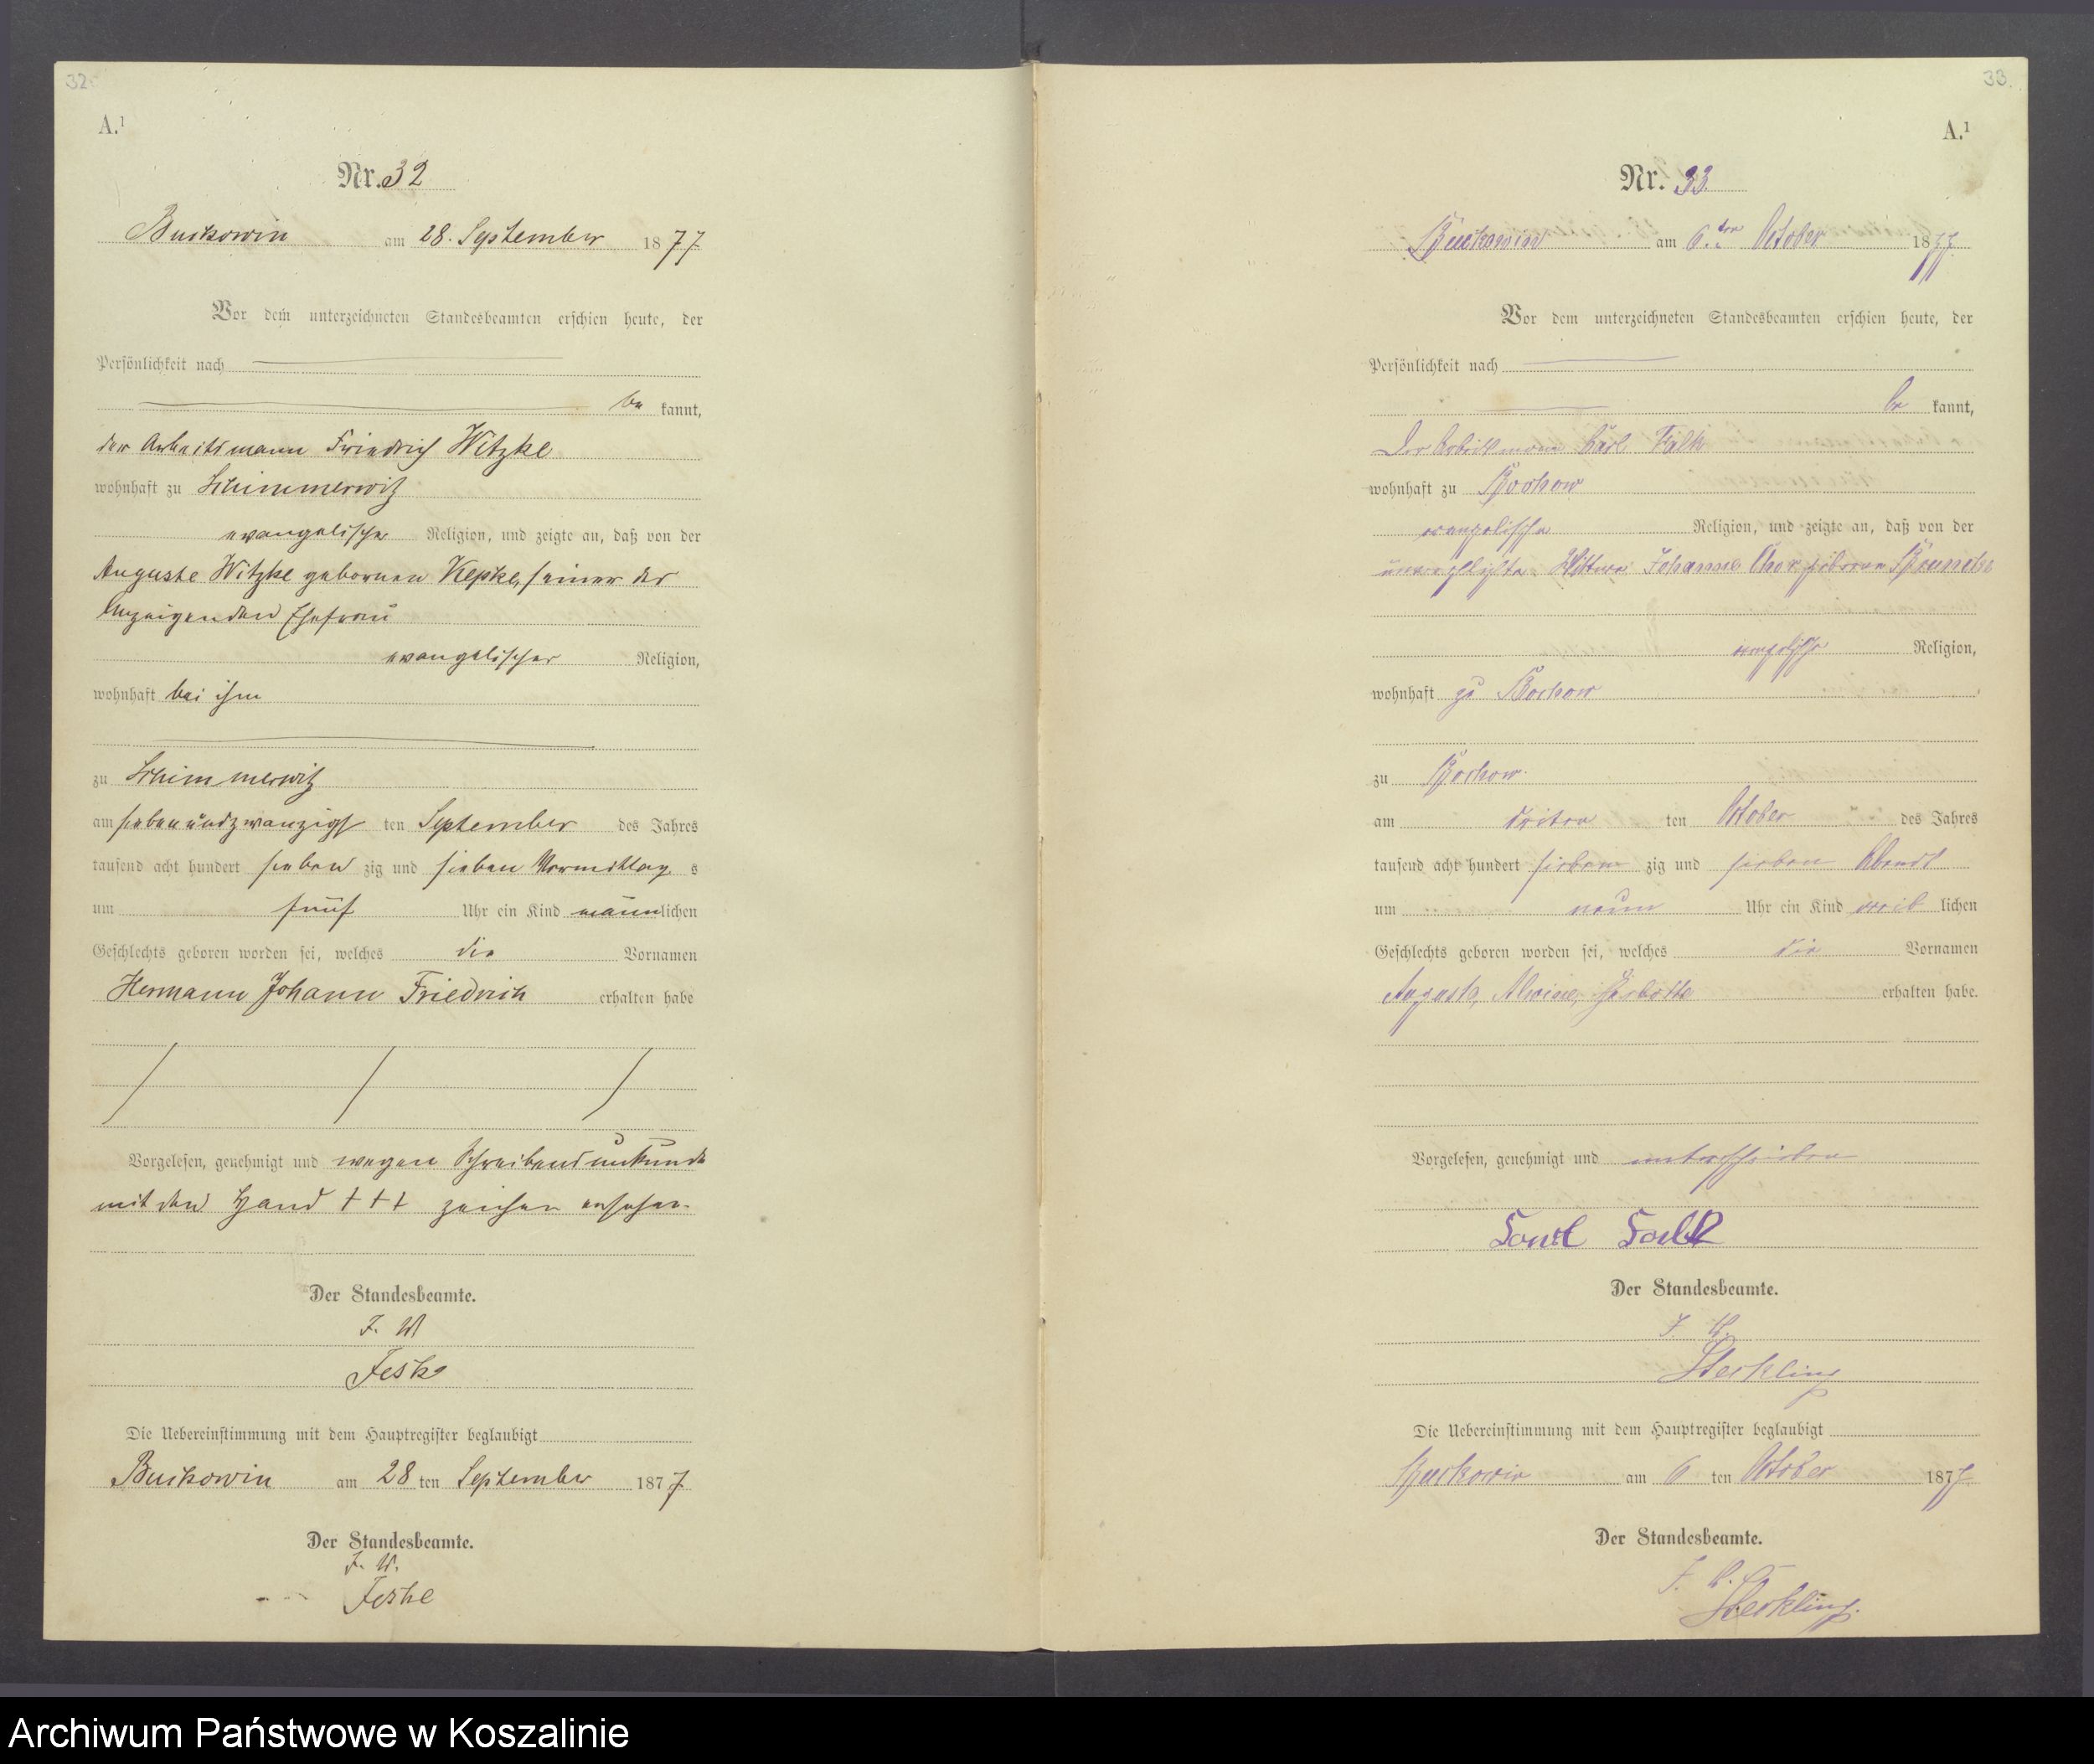 32.
A.¹
Nr. 32
Buckowin am 28. September 1877
Vor dem unterzeichneten Standesbeamten erschien heute, der
Persönlichkeit nach
be kannt,
der Arbeitsmann Friedrich Witzke
wohnhaft zu Schimmerwitz
evangelischer Religion, und zeigte an, daß von der
Auguste Witzke geborenen Kepke, seiner des
Anzeigenden Ehefrau
evangelischer Religion,
wohnhaft bei ihm
zu Schimmerwitz
am siebenundzwanzigs ten September des Jahres
tausend acht hundert sieben zig und sieben Vormittag s
um fünf Uhr ein Kind männlichen
Geschlechts geboren worden sei, welches die Vornamen
Hermann Johann Friedrich erhalten habe
Vorgelesen, genehmigt und wegen Schreibensunkunde
mit den Hand +++ zeichen versehen.
Der Standesbeamte.
J. V.
Feske
Die Uebereinstimmung mit dem Hauptregister beglaubigt
Buckowin am 28 ten September 1877
Der Standesbeamte.
J. V.
Feske
33.
A.¹
Nr. 33
Buckowin am 6.ten October 1877
Vor dem unterzeichneten Standesbeamten erschien heute, der
Persönlichkeit nach
be kannt,
Der Arbeitsmann Carl Falk
wohnhaft zu Bochow
evangelischer Religion, und zeigte an, daß von der
Wittwe Johanne geborene
evangelischer Religion,
wohnhaft zu Bochow
zu Bochow
am dritten ten October des Jahres
tausend acht hundert sieben zig und sieben Abends
um neun Uhr ein Kind weib lichen
Geschlechts geboren worden sei, welches die Vornamen
Auguste, erhalten habe.
Vorgelesen, genehmigt und unterschrieben
Carl Falk
Der Standesbeamte.
J. V.
Steckling
Die Uebereinstimmung mit dem Hauptregister beglaubigt
Buckowin am 6 ten October 1877
Der Standesbeamte.
J. V.
Steckling.
Archiwum Państwowe w Koszalinie